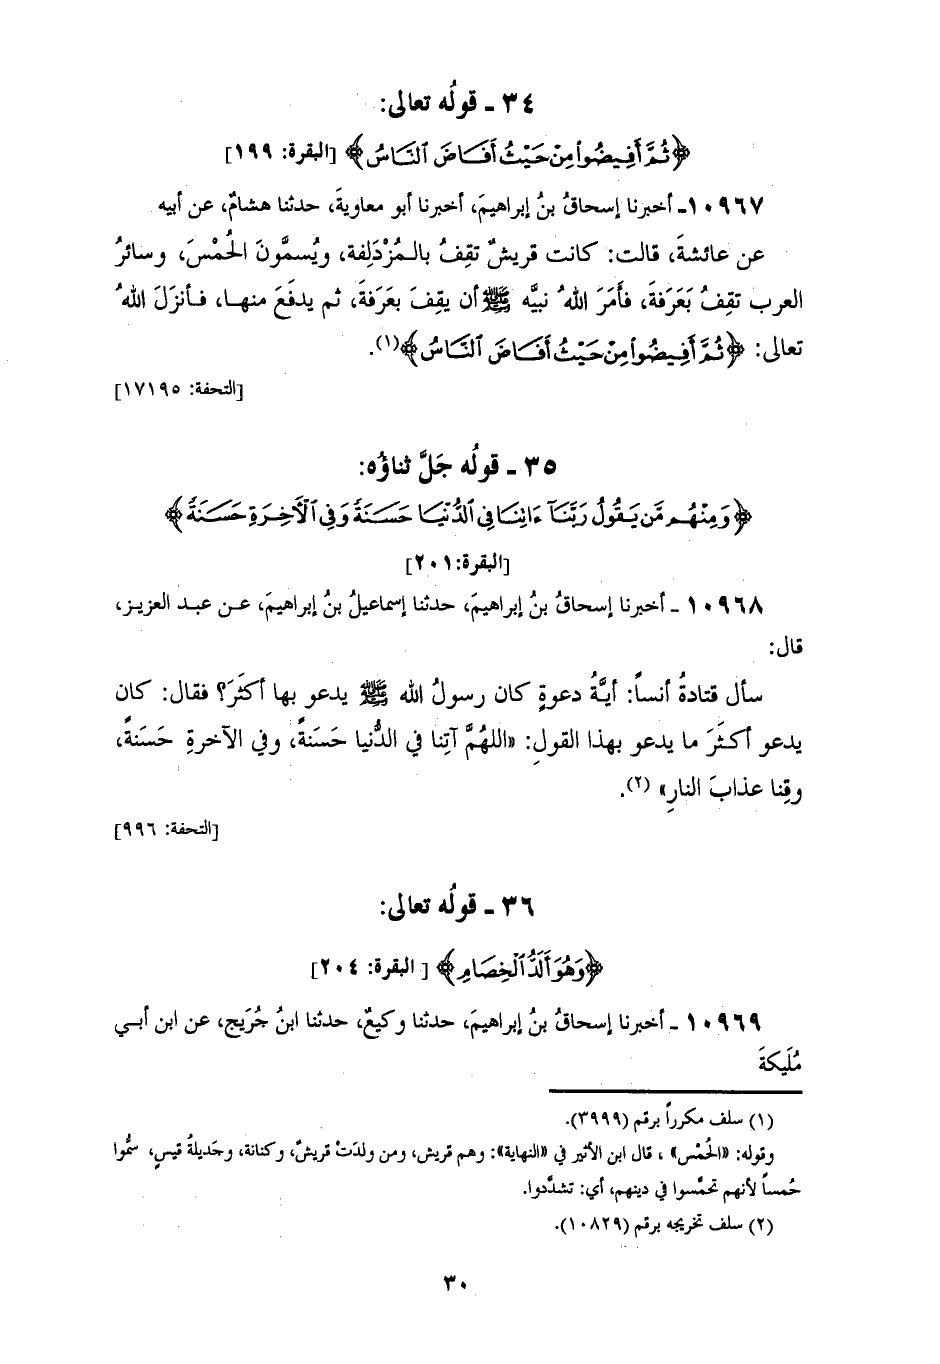 ٣٤ ـ قولُه تعالى:
﴿ثُمَّ أَفِيضُوا۟ مِنْ حَيْثُ أَفَاضَ ٱلنَّاسُ﴾ [البقرة: ١٩٩]
١٠٩٦٧ـ أخبرنا إسحاقُ بنُ إبراهيمَ، أخبرنا أبو معاويةَ، حدثنا هشامٌ، عن أبيه
عن عائشةَ، قالت: كانت قريشٌ تقِفُ بالـمُزْدَلِفة، ويُسمَّونَ الحُمْسَ، وسائرُ
العرب تقِفُ بَعَرَفةَ، فأمَرَ اللهُ نبيَّه ﷺ أن يقِفَ بعَرَفةَ، ثم يدفَعَ منهـا، فـأنزَلَ اللهُ
تعالى: ﴿ثُمَّ أَفِيضُوا۟ مِنْ حَيْثُ أَفَاضَ ٱلنَّاسُ﴾(١).
[التحفة: ١٧١٩٥]
٣٥ ـ قولُه جَلَّ ثناؤُه:
﴿وَمِنْهُم مَّن يَقُولُ رَبَّنَآ ءَاتِنَا فِى ٱلدُّنْيَا حَسَنَةً وَفِى ٱلْأَخِرَةِ حَسَنَةً﴾
[البقرة:٢٠١]
١٠٩٦٨ ـ أخبرنا إسحاقُ بنُ إبراهيمَ، حدثنا إسماعيلُ بنُ إبراهيمَ، عـن عبـد العزيـز،
قال:
سأل قتادةُ أنساً: أيَّةُ دعوةٍ كان رسولُ الله ﷺ يدعو بها أكثَرَ؟ فقال: كان
يدعو أكـثَرَ ما يدعو بهذا القولِ: «اللهُمَّ آتِنا في الدُّنيا حَسَنةً، وفي الآخرةِ حَسَنةً،
وقِنا عذابَ النارِ» (٢).
[التحفة: ٩٩٦]
٣٦ ـ قولُه تعالى:
﴿وَهُوَ أَلَدُّ ٱلْخِصَامِ﴾ [ البقرة: ٢٠٤]
١٠٩٦٩ ـ أخبرنا إسحاقُ بنُ إبراهيمَ، حدثنا وكيعٌ، حدثنا ابنُ جُرَيج، عن ابن أبـي
مُلَيكةَ
(١) سلف مكرراً برقم (٣٩٩٩).
وقوله: «الحُمْس» ، قال ابن الأثير في «النهاية»: وهم قريش، ومن ولدَتْ قريشٌ، وكنانة، وجَديلةُ قيسٍ، سُمُّوا
حُمساً لأنهم تحمَّسوا في دينهم، أي: تشدَّدوا.
(٢) سلف تخريجه برقم (١٠٨٢٩).
٣٠